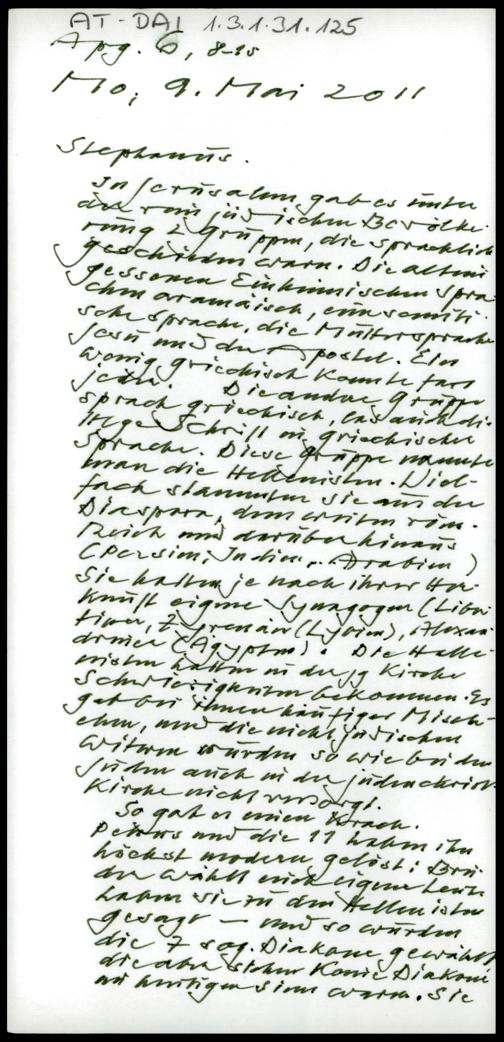 AT-DAI 1.3.1.31.125
Apg. 6, 8-15
Mo, 9. Mai 2011
Stephanus.
In Jerusalem gab es unter
der rein jüdischen Bevölke-
rung 2 Gruppen, die sprachlich
geschieden waren. Die alteini-
gesessenen Einheimischen spra-
chen aramäisch, eine semiti-
sche Sprache, die Muttersprache
Jesu und der Apostel. Ein
wenig griechisch konnte fast
jeder. Die andere Gruppe
sprach griechisch, las auch die
Hlge Schrift in griechischer
Sprache. Diese Gruppe nannte
man die Hellenisten. Viel-
fach stammten sie aus der
Diaspora, dem weiten röm.
Reich und darüber hinaus
(Persien, Indien.. Arabien)
Sie hatten je nach ihrer Her-
kunft eigene Synagogen (Liber-
tiner, Zyrenäer (Lybien), Alexan-
driner (Ägypten). Die Helle-
nisten hatten in der jg Kirche
Schwierigkeiten bekommen. Es
gab bei ihnen häufiger Misch-
ehen, und die nichtjüdischen
Witwen wurden so wie bei den
Juden auch in der judenchristl.
Kirche nicht versorgt.
So gab es einen Krach.
Petrus und die 11 haben ihn
höchst modern gelöst: Brü-
der wählt euch eigene Leute
haben sie zu den Hellenisten
gesagt – und so wurden
die 7 sog. Diakone gewählt
die aber sicher keine Diakone
im heutigen Sinn waren. Sie